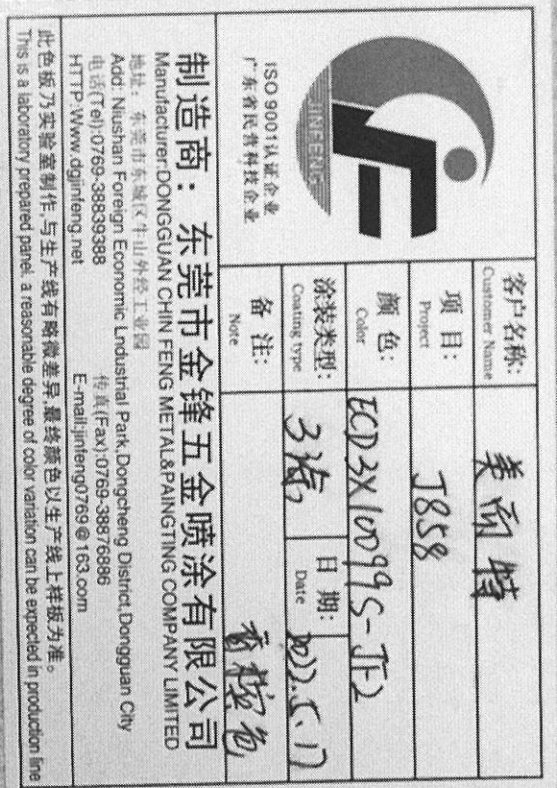 JINFENG
ISO 9001认证企业
广东省民营科技企业
客户名称: 美而特
Customer Name
项 目: J858
Project
颜 色: ECD3X10099S-JF2
Color
涂装类型: 3涂
Coating type
日 期: 2022.5.17
Date
备 注: 香槟色
Note
制造商：东莞市金锋五金喷涂有限公司
Manufacturer:DONGGUAN CHIN FENG METAL&PAINGTING COMPANY LIMITED
地址：东莞市东城区牛山外经工业园
Add: Niushan Foreign Economic Lndustrial Park,Dongcheng District,Dongguan City
电话(Tel):0769-38839388 传真(Fax):0769-38876886
HTTP:Www.dgjinfeng.net E-mail:jinfeng0769@163.com
此色板乃实验室制作,与生产线有略微差异,最终颜色以生产线上样板为准。
This is a laboratory prepared panel, a reasonable degree of color variation can be expected in production line